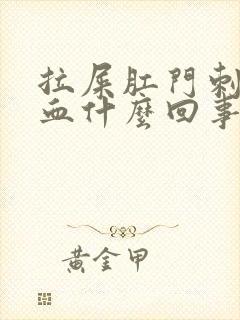 拉屎肛門刺
血什麼回事
黃金甲